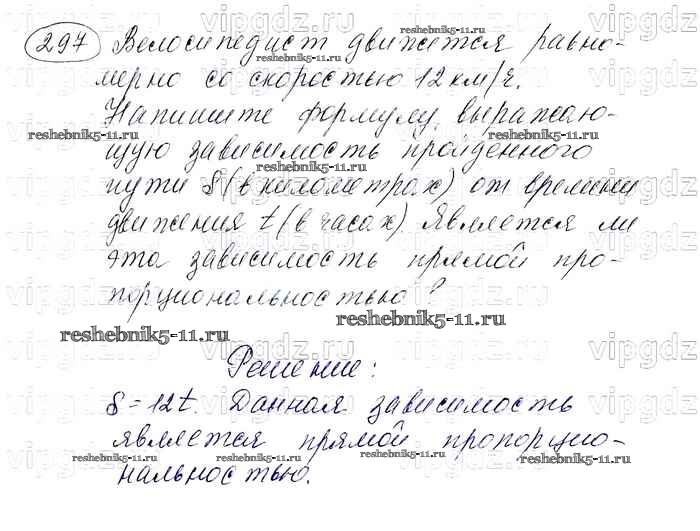 297 Велосипедист движется равно-
мерно со скоростью 12 км/ч.
Напишите формулу, выражаю-
щую зависимость пройденного
пути S (в километрах) от времени
движения t (в часах). Является ли
эта зависимость прямой про-
порциональностью?
Решение:
S = 12t. Данная зависимость
является прямой пропорцио-
нальностью.
vipgdz
reshebnik5-11.ru